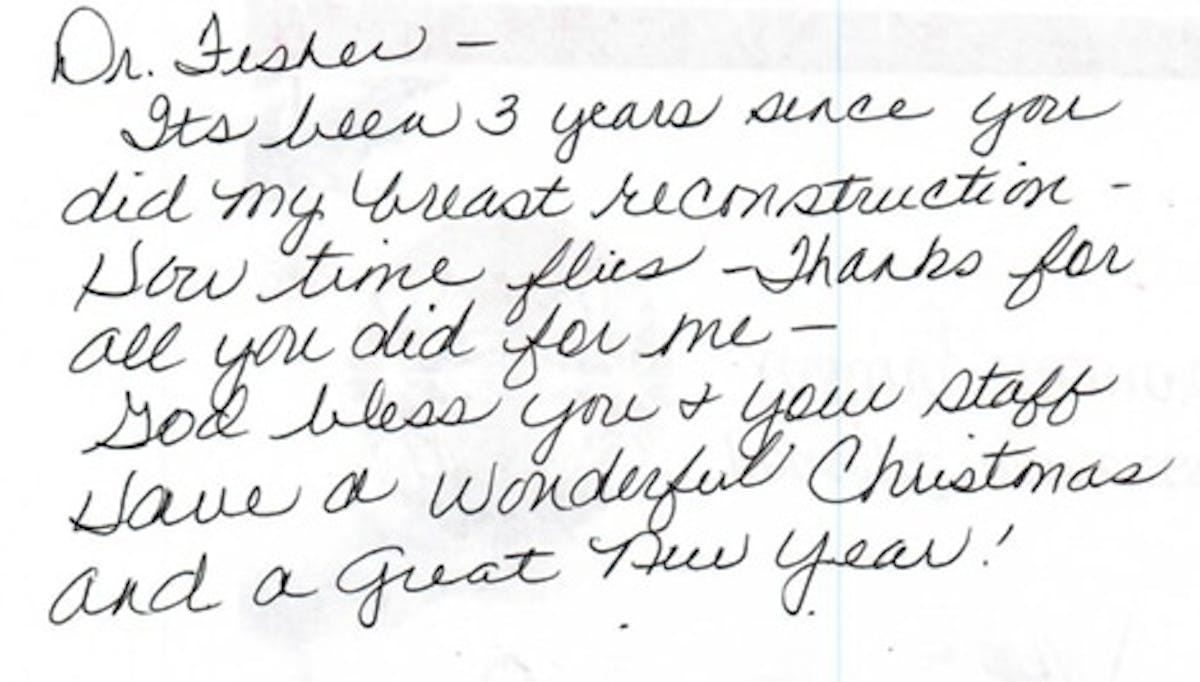 Dr. Fisher –
Its been 3 years since you
did my breast reconstruction -
How time flies – Thanks for
all you did for me –
God bless you & your staff
Have a Wonderful Christmas
and a Great New Year!